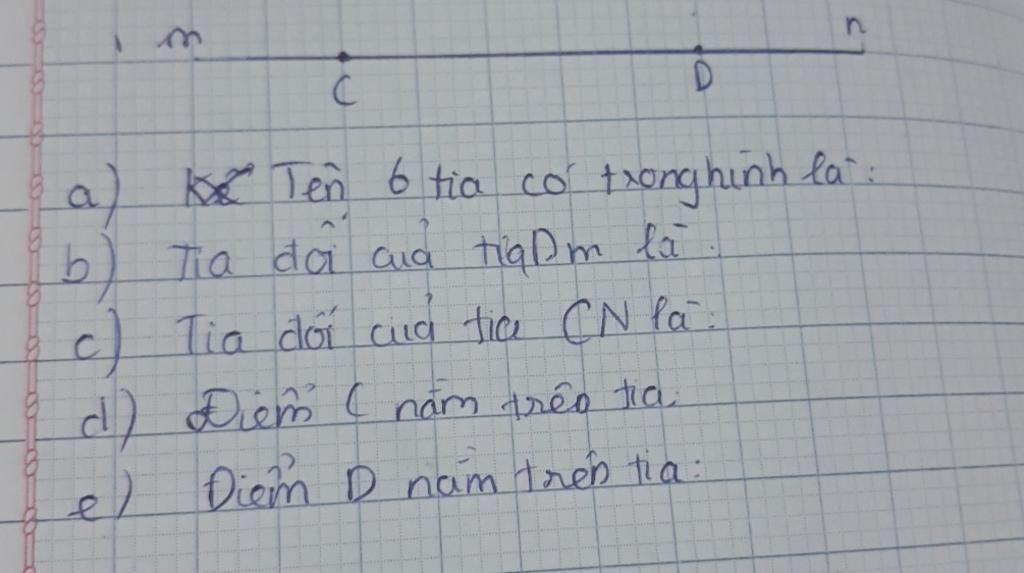 m n
C D
a) Tên 6 tia có trong hình là:
b) Tia đối của tia Dm là:
c) Tia đối của tia CN là:
d) Điểm C nằm trên tia:
e) Điểm D nằm trên tia: